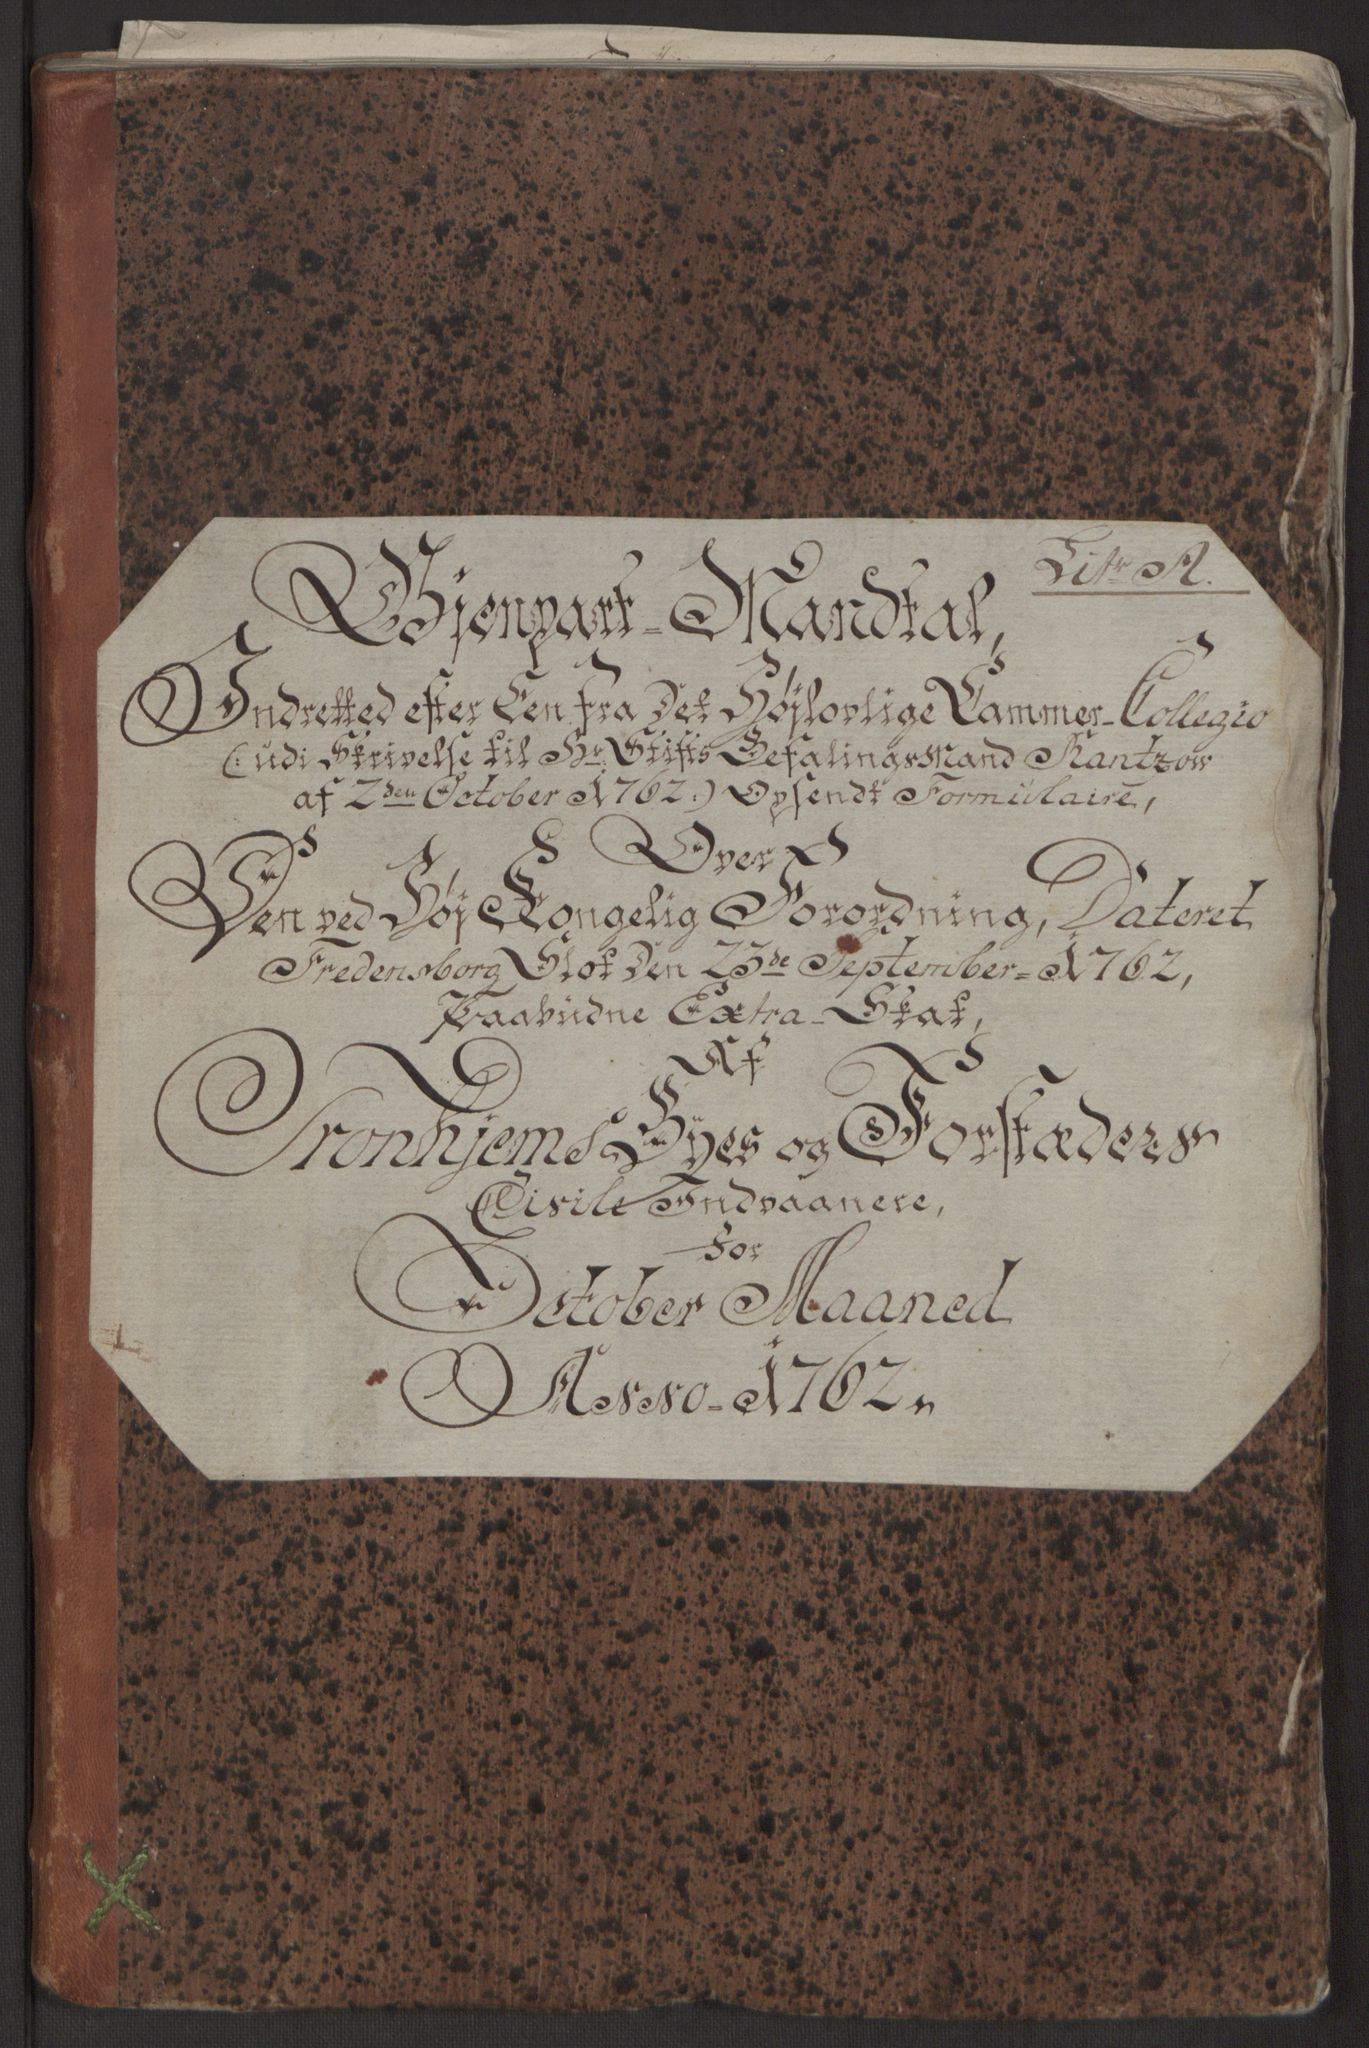 Litr. A.
Gjenpart-Mandtal,
Indretted efter Een fra Det Højlovlige Cammer-Collegio
(: udi Skrivelse til Hr. Stifts Befalingsmand Rantzow
af 2den October 1762:) Opsendt Formulaire,
Over
Den ved Høj Kongelig Forordning, Dateret
Fredensborg Slot den 23de September-1762,
Paabudne Extra-Skat,
Af
Tronhjems Byes og Forstæders
Civile Indvaanere,
for
October Maaned
Anno-1762.